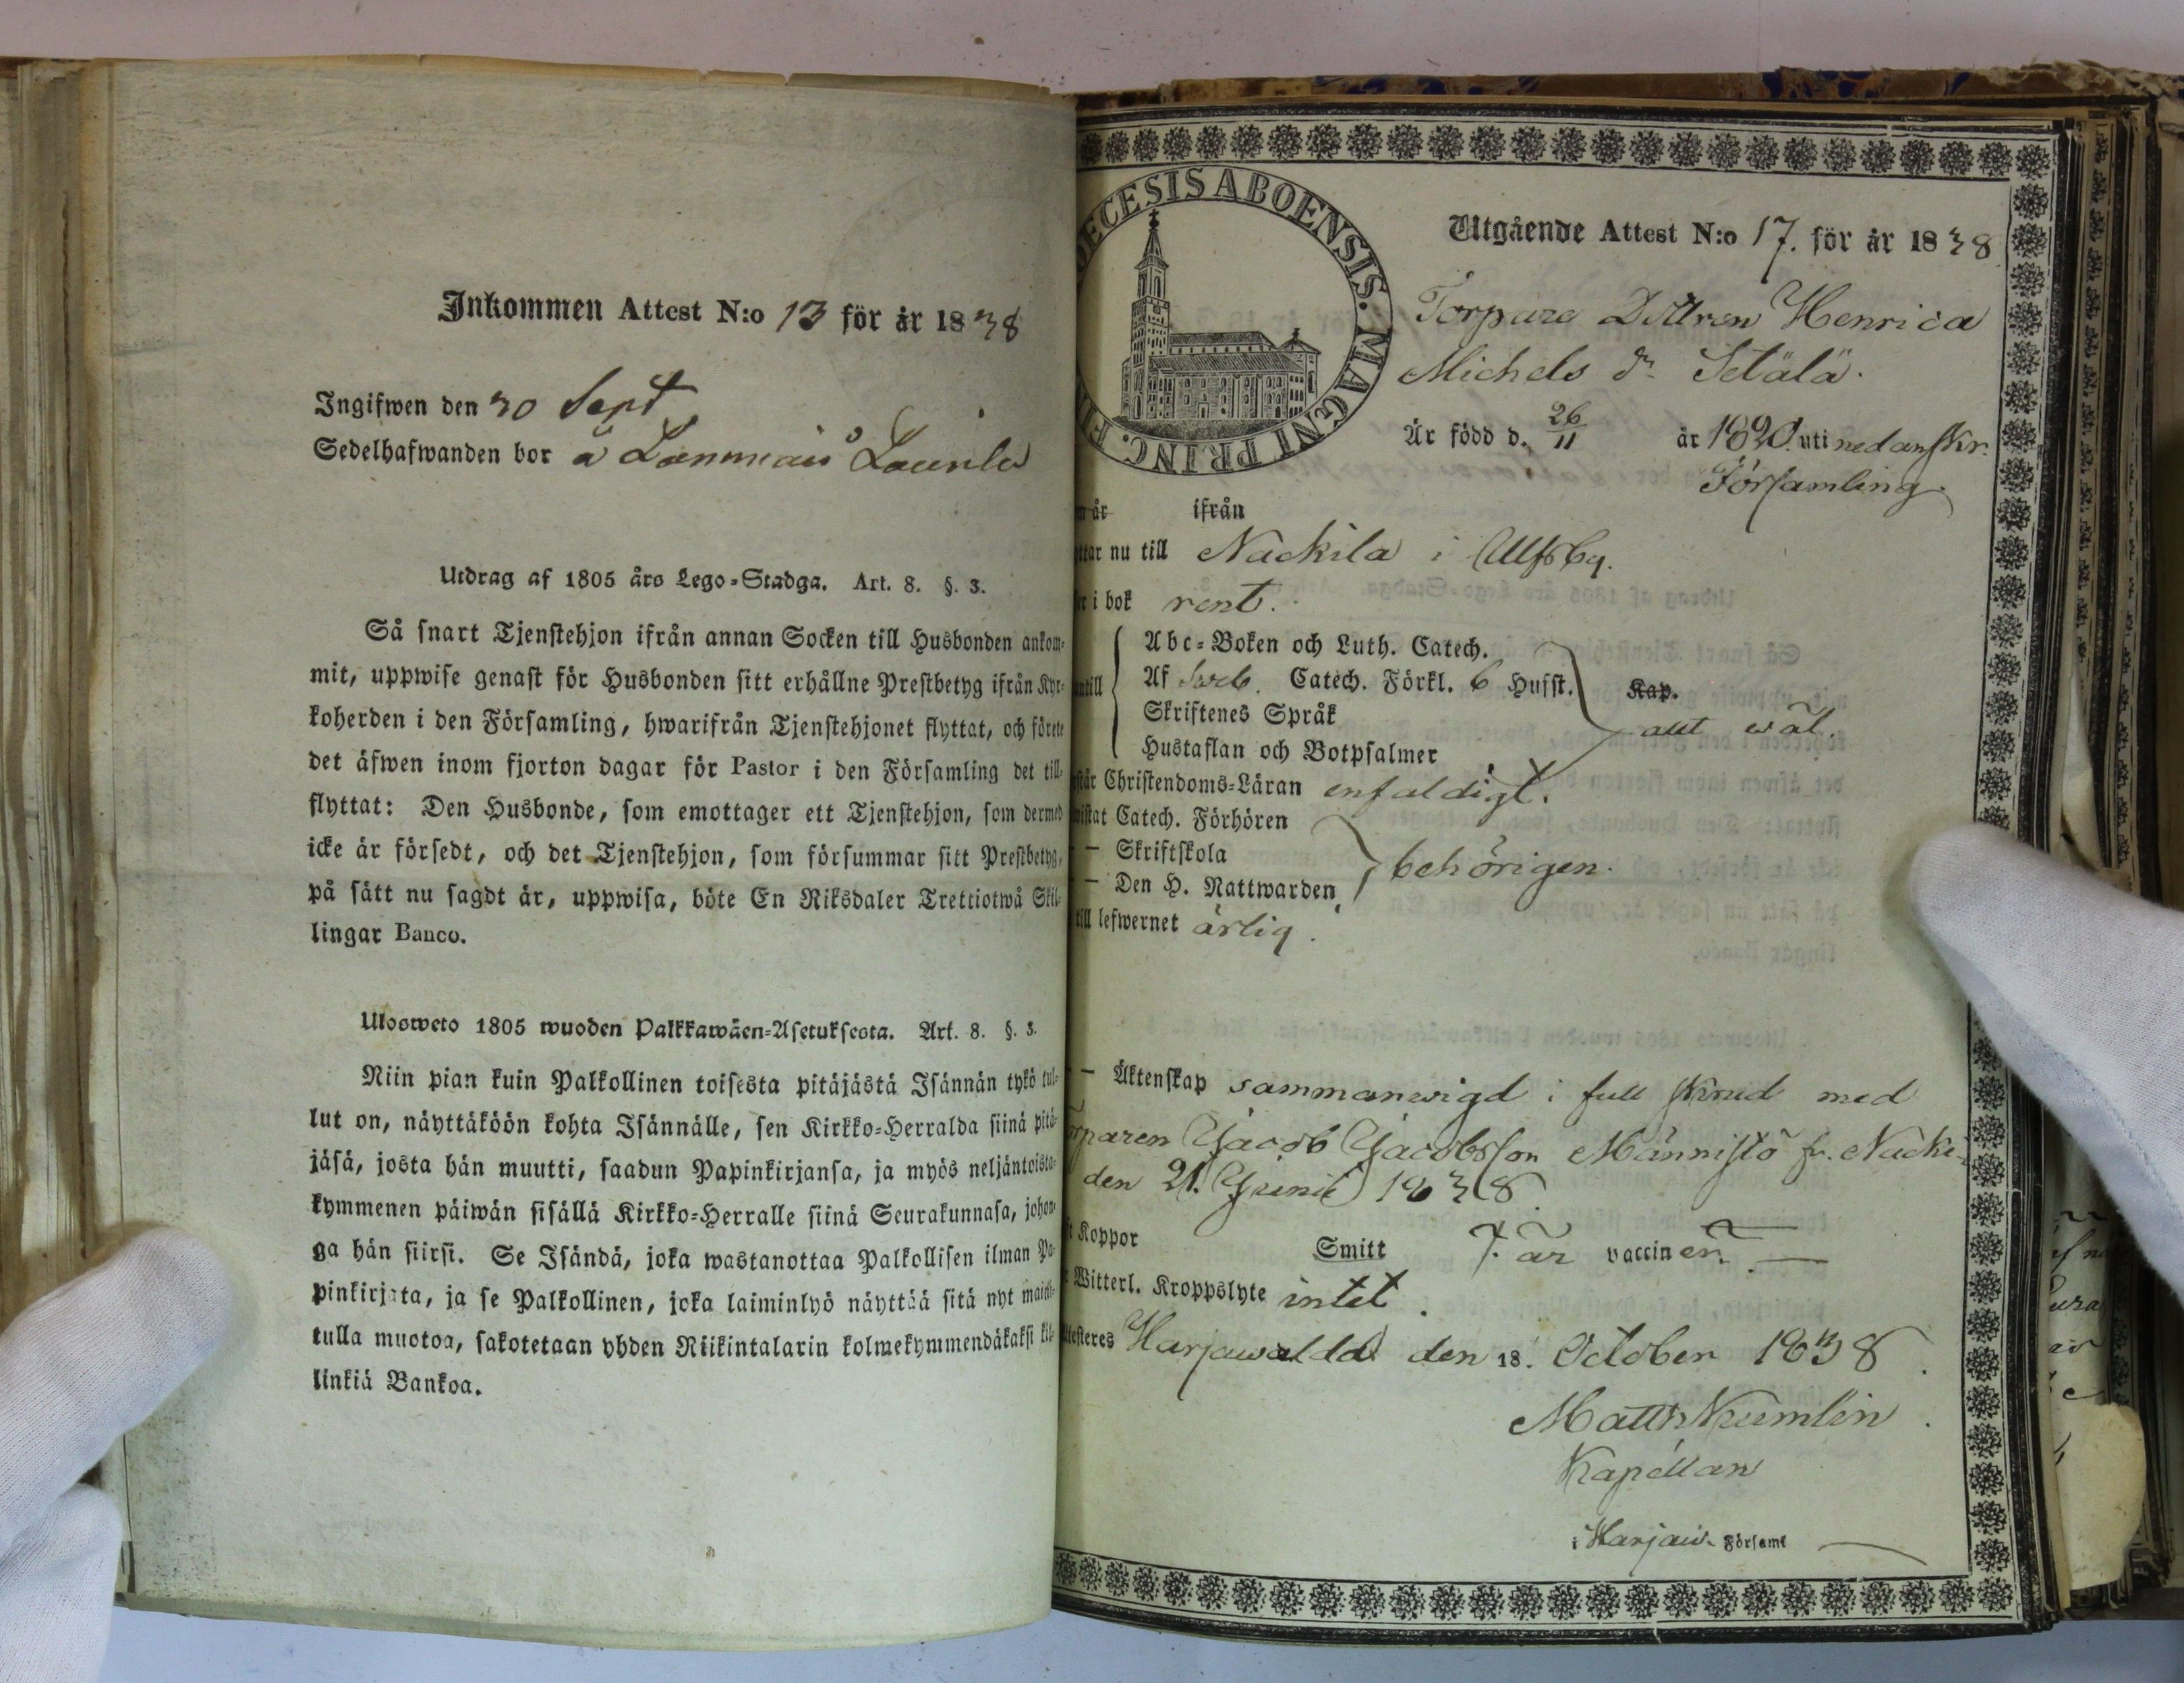 Inkommen Attest N:o 13 för år 1838
Ingifwen den 30 Sept
Sedelhafwanden bor å Lammais
Utdrag af 1805 års Lego-Stadga. Art. 8. §. 3.
Så snart Tjenstehjon ifrån annan Socken till Husbonden ankom-
mit, uppwise genast för Husbonden sitt erhållne Prestbetyg ifrån Kyr-
koherden i den Församling, hwarifrån Tjenstehjonet flyttat, och förete
det äfwen inom fjorton dagar för Pastor i den Församling det till-
flyttat: Den Husbonde, som emottager ett Tjenstehjon, som dermed
icke är försedt, och det Tjenstehjon, som försummar sitt Prestbetyg,
på sätt nu sagdt är, uppwisa, böte En Riksdaler Trettiotwå Skil-
lingar Banco.
Ulosweto 1805 wuoden Palkkawäen-Asetuksesta. Art. 8. §. 3.
Niin pian kuin Palkollinen toisesta pitäjästä Isännän tykö tul-
lut on, näyttäköön kohta Isännälle, sen Kirkko-Herralda siinä pitä-
jäsä, josta hän muutti, saadun Papinkirjansa, ja myös neljäntoista-
kymmenen päiwän sisällä Kirkko-Herralle siinä Seurakunnasa, johon-
ga hän siirsi. Se Isändä, joka wastanottaa Palkollisen ilman Pa-
pinkirjata, ja se Palkollinen, joka laiminlyö näyttää sitä nyt mainit-
tulla muotoa, sakotetaan yhden Riikintalarin kolmekymmendäkaksi kil-
linkiä Bankoa.
ECESIS ABOENSIS. MAGNI PRINC. FIN
Utgående Attest N:o 17. för år 1838
Torpare Dottren Henrica
Michels dr. Setälä.
Är född d. 26/11 år 1820. uti nedanskr.
Församling.
n år ifrån
ttar nu till Nackila i Ulfsby.
er i bok rent.
Abc-Boken och Luth. Catech.
antill Af Sveb. Catech. Förkl. 6 Hufst. Kap.
Skriftenes Språk allt wäl.
Hustaflan och Botpsalmer
står Christendoms-Läran enfaldigt.
wistat Catech. Förhören
— Skriftskola behörigen.
— Den H. Nattwarden
till lefwernet ärlig.
— Äktenskap sammanwigd i full skrud med
orparen Jacob Jacobsson Männistö fr. Nacki-
den 21. Junii 1838
t Koppor Smitt f. är vaccinen. —
Witterl. Kroppslyte intet.
ttesteres Harjawalda den 18. October 1838.
Matth Kumlin.
Kapellan
i Harjaw. Församl